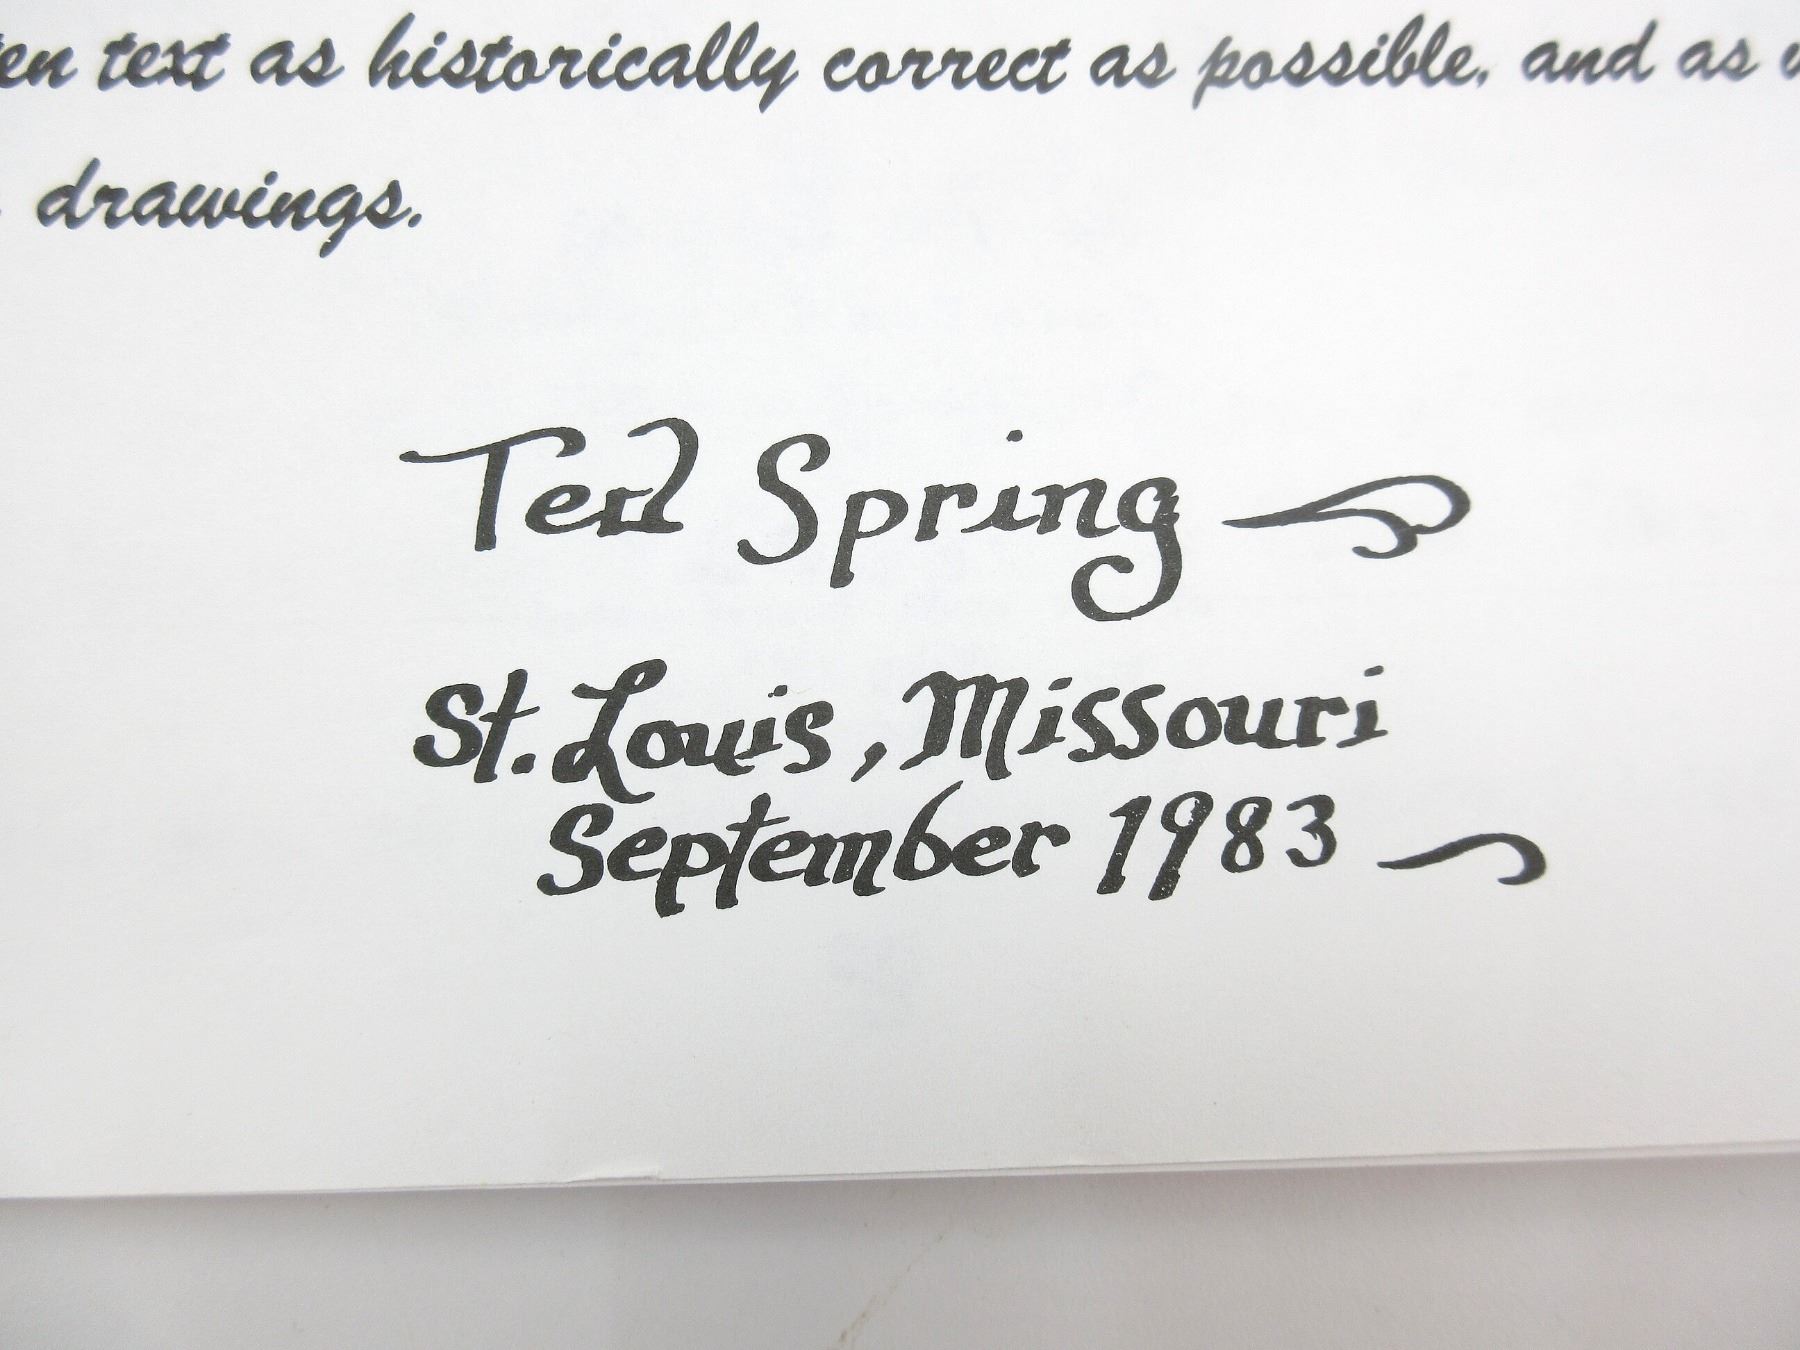 text as historically correct as possible, and as
drawings.
Ted Spring
St. Louis, Missouri
September 1983